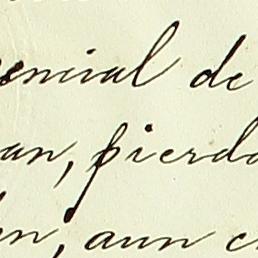 encial de
an, pierda
n, aun c